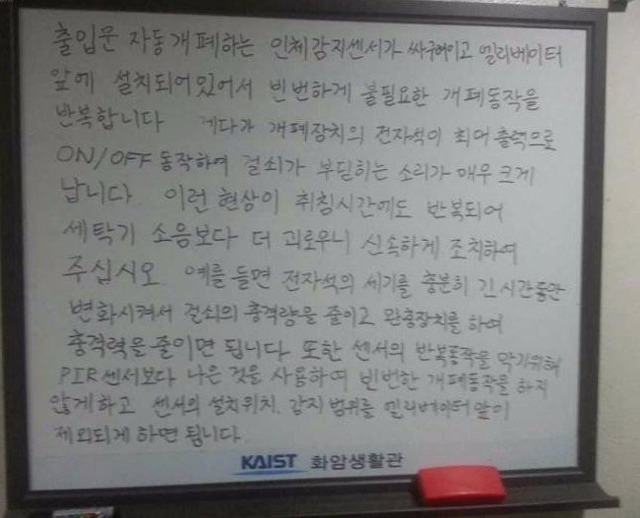 출입문 자동개폐하는 인체감지센서가 싸구려이고 엘리베이터
앞에 설치되어있어서 빈번하게 불필요한 개폐동작을
반복합니다 게다가 개폐장치의 전자석이 최대출력으로
ON/OFF 동작하여 걸쇠가 부딛히는 소리가 매우 크게
납니다. 이런 현상이 취침시간에도 반복되어
세탁기 소음보다 더 괴로우니 신속하게 조치하여
주십시오 예를 들면 전자석의 세기를 충분히 긴 시간동안
변화시켜서 걸쇠의 충격량을 줄이고 완충장치를 하여
충격력을 줄이면 됩니다. 또한 센서의 반복동작을 막기위해
PIR센서보다 나은 것을 사용하여 빈번한 개폐동작을 하지
않게하고 센서의 설치위치. 감지 범위를 엘리베이터 앞이
제외되게 하면 됩니다.
KAIST 화암생활관